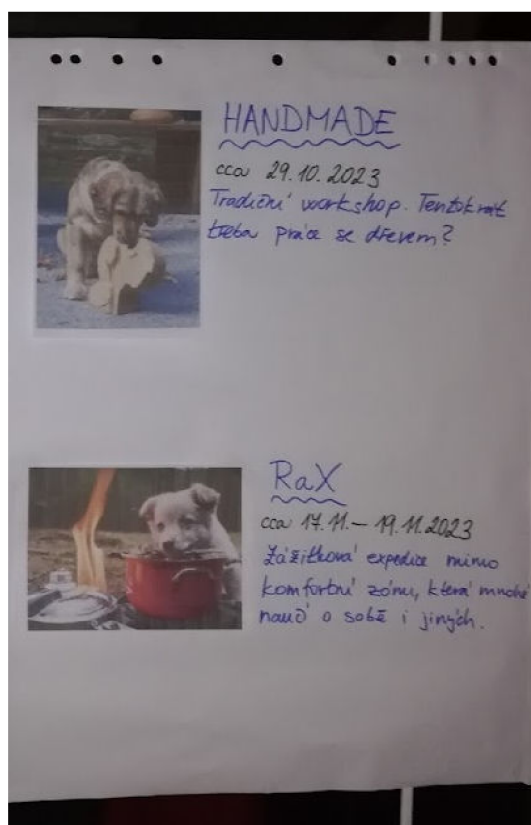 HANDMADE
cca 29.10.2023
Tradiční workshop. Tentokrát
třeba práce se dřevem?
RaX
cca 17.11.–19.11.2023
Zážitková expedice mimo
komfortní zónu, která mnohé
naučí o sobě i jiných.